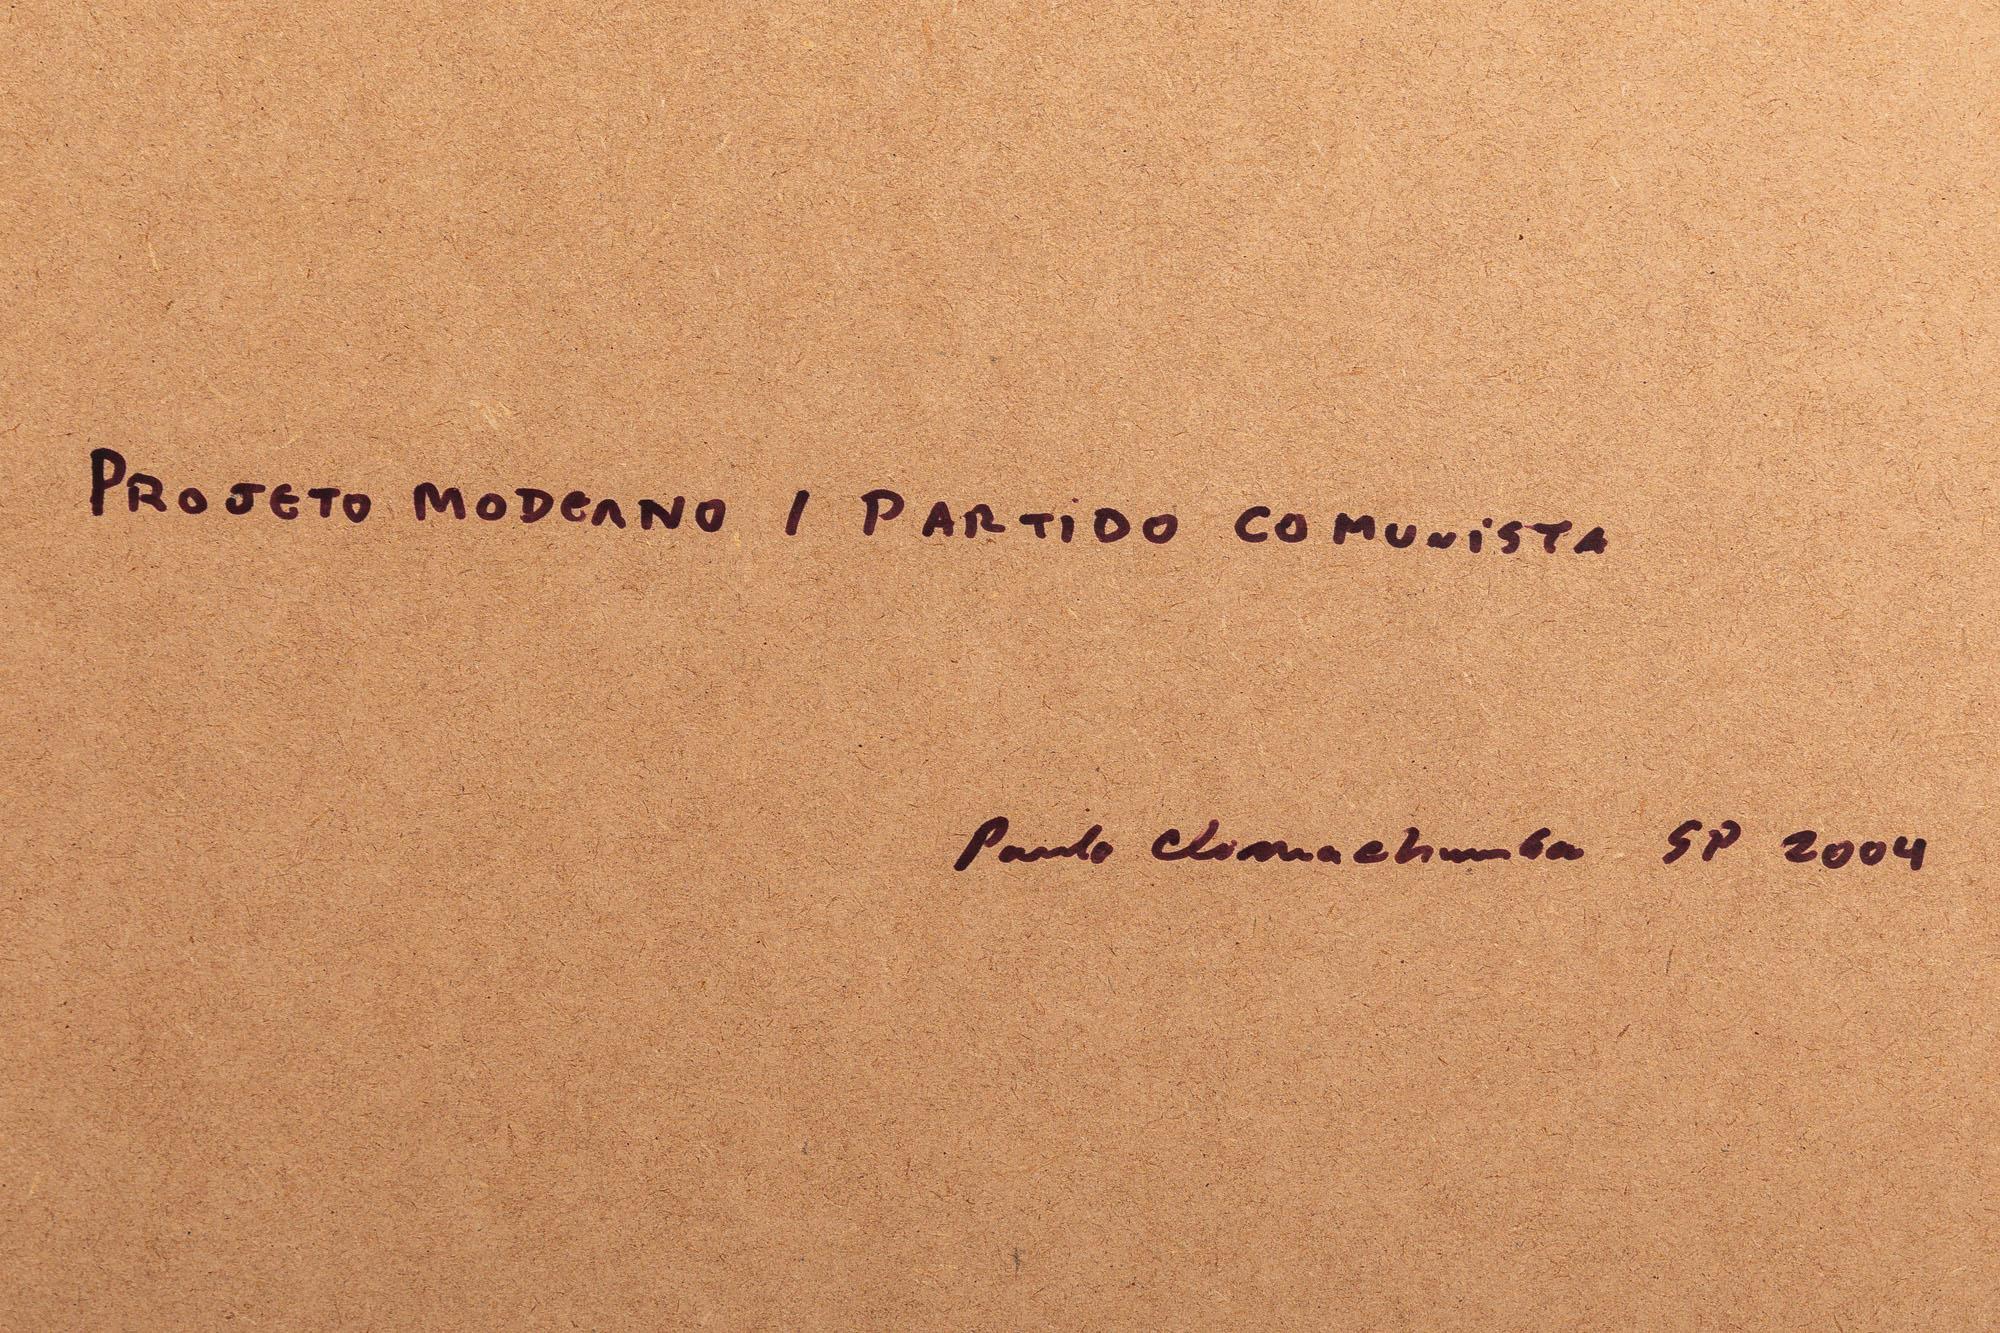 PROJETO MODERNO / PARTIDO COMUNISTA
Paulo Climachauska SP 2004